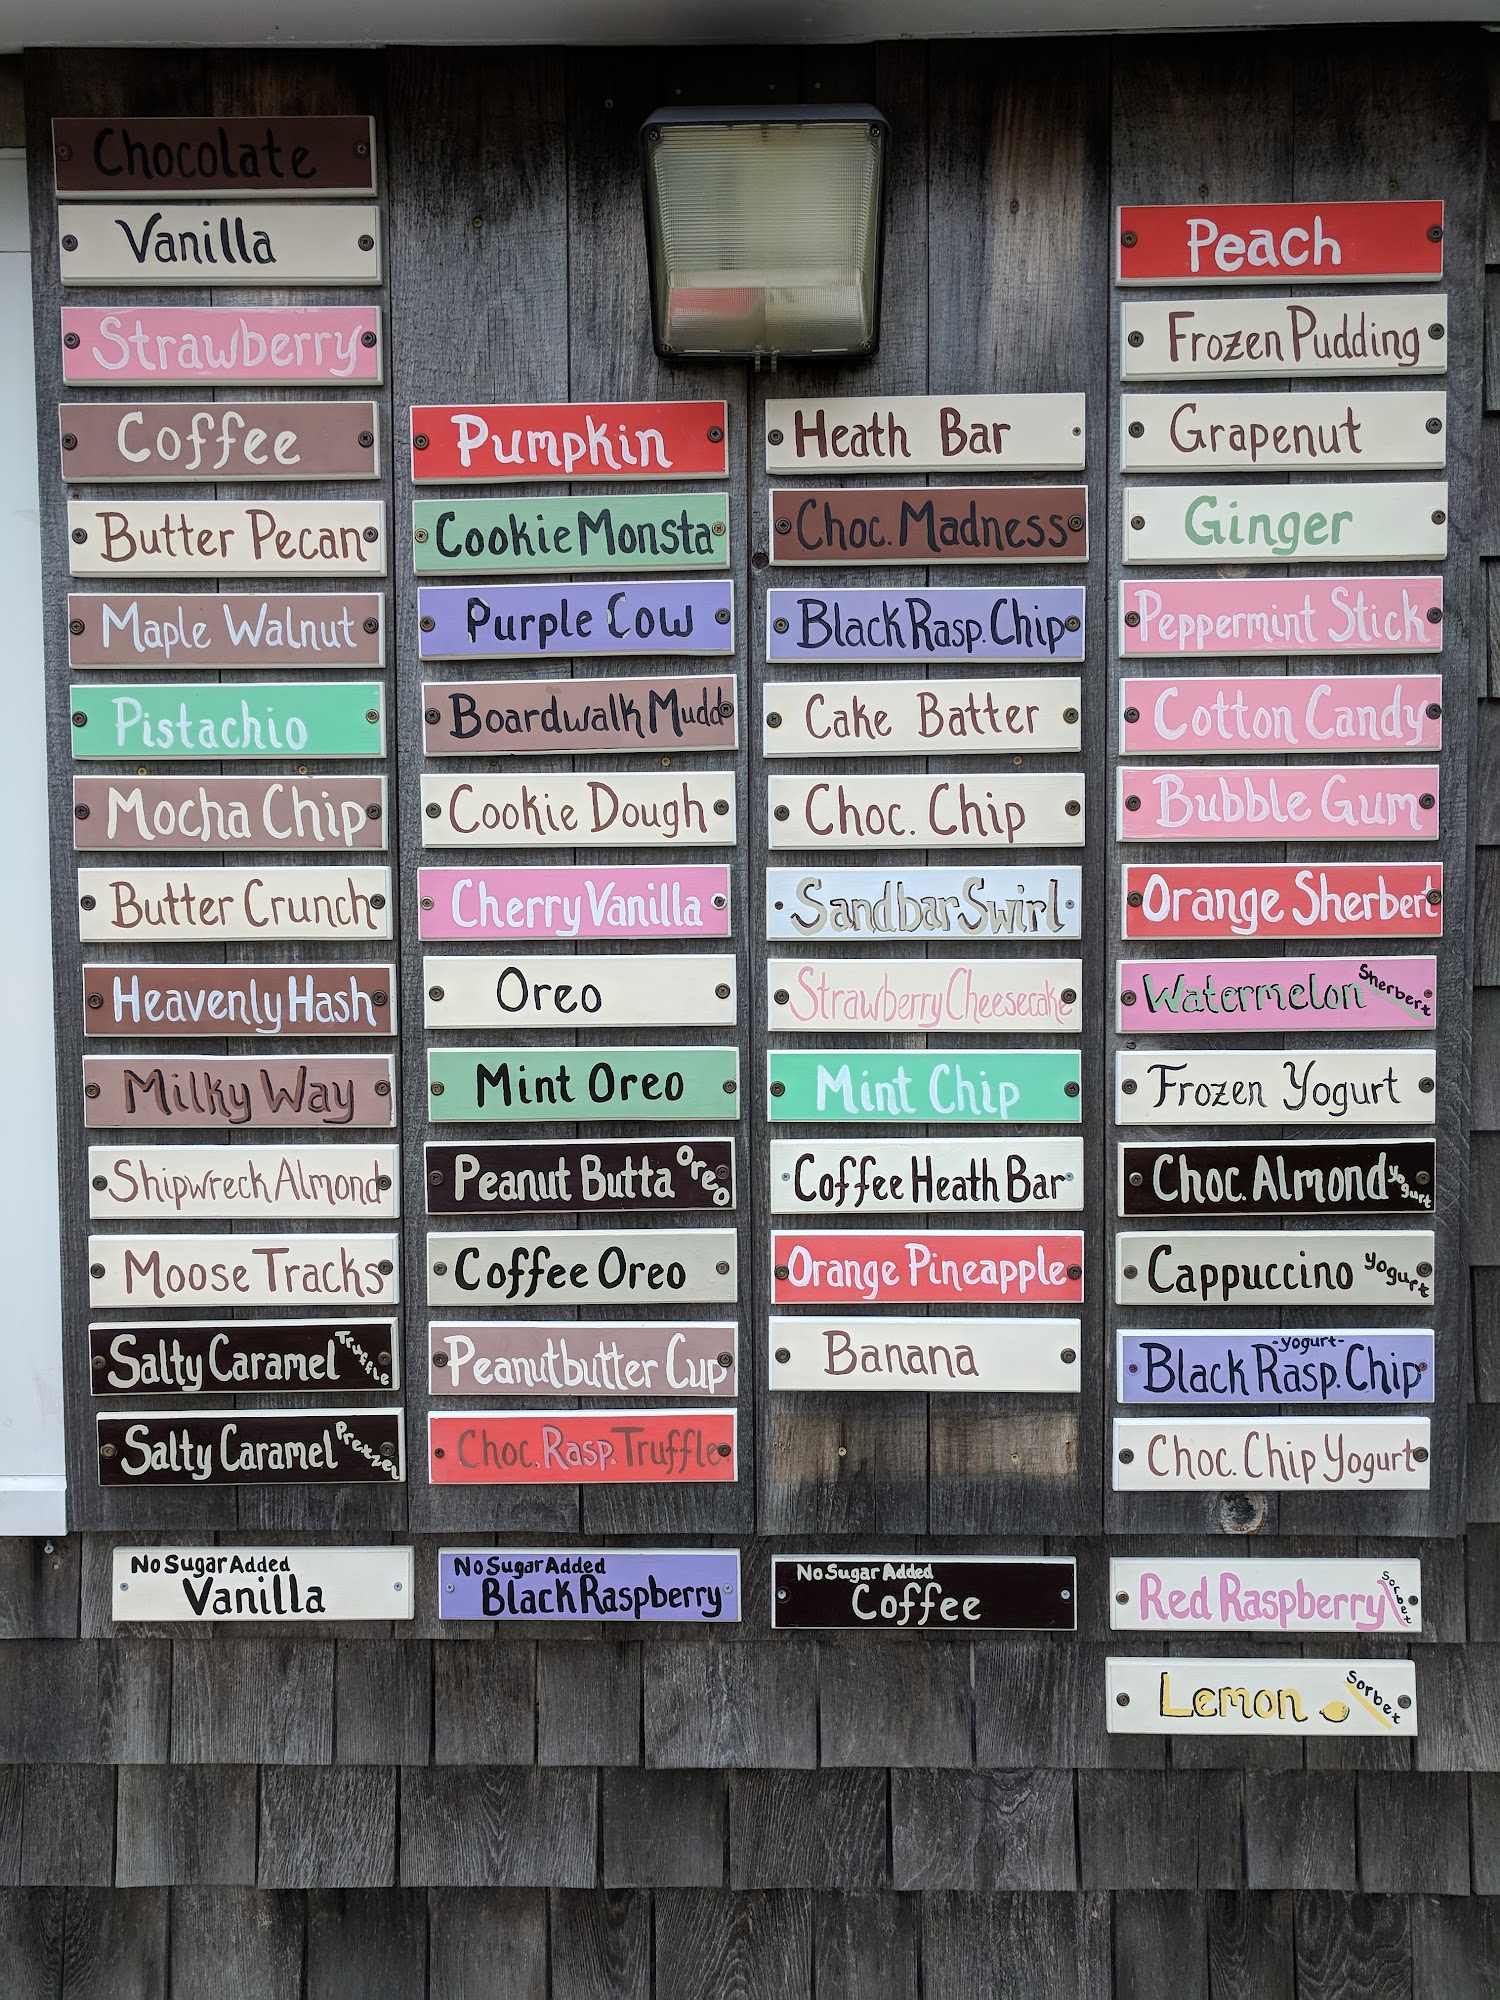 Chocolate
Vanilla
Strawberry
Coffee
Butter Pecan
Maple Walnut
Pistachio
Mocha Chip
Butter Crunch
Heavenly Hash
Milky Way
Shipwreck Almond
Moose Tracks
Salty Caramel Truffle
Salty Caramel Pretzel
No Sugar Added
Vanilla
Pumpkin
Cookie Monsta
Purple Cow
Boardwalk Mudd
Cookie Dough
Cherry Vanilla
Oreo
Mint Oreo
Peanut Butta Oreo
Coffee Oreo
Peanutbutter Cup
Choc. Rasp. Truffle
No Sugar Added
Black Raspberry
Heath Bar
Choc. Madness
Black Rasp. Chip
Cake Batter
Choc. Chip
Sandbar Swirl
Strawberry Cheesecake
Mint Chip
Coffee Heath Bar
Orange Pineapple
Banana
No Sugar Added
Coffee
Peach
Frozen Pudding
Grapenut
Ginger
Peppermint Stick
Cotton Candy
Bubble Gum
Orange Sherbert
Watermelon Sherbert
Frozen Yogurt
Choc. Almond yogurt
Cappuccino yogurt
-yogurt-
Black Rasp. Chip
Choc. Chip Yogurt
Red Raspberry Sorbet
Lemon Sorbet